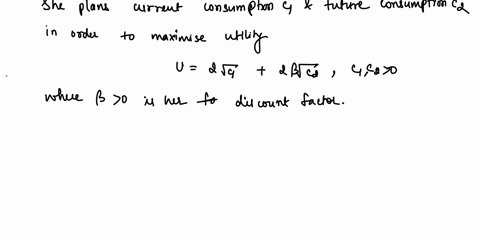 She plans current consumption C1 & future consumption C2
in order to maximise utility
U = 2√C1 + 2β√C2 , C1,C2>0
where β >0 is her fo discount factor.